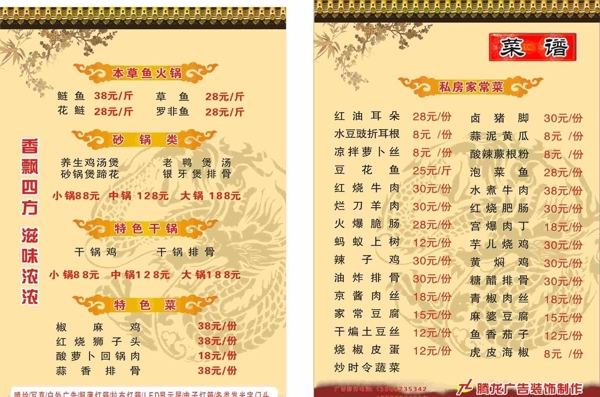 本草鱼火锅
鲢鱼 38元/斤 草鱼 28元/斤
花鲢 28元/斤 罗非鱼 28元/斤
砂锅类
养生鸡汤煲 老鸭煲汤
砂锅煲蹄花 银牙煲排骨
小锅88元 中锅128元 大锅188元
特色干锅
干锅鸡 干锅排骨
小锅88元 中锅128元 大锅188元
特色菜
椒麻鸡 38元/份
红烧狮子头 38元/份
酸萝卜回锅肉 18元/份
蒜香排骨 38元/份
香飘四方 滋味浓浓
菜谱
私房家常菜
红油耳朵 28元/份
水豆豉折耳根 8元/份
凉拌萝卜丝 8元/份
豆花鱼 25元/斤
红烧牛肉 30元/份
烂刀羊肉 30元/份
火爆脆肠 28元/份
蚂蚁上树 12元/份
辣子鸡 30元/份
油炸排骨 30元/份
京酱肉丝 18元/份
家常豆腐 15元/份
干煸土豆丝 12元/份
烧椒皮蛋 12元/份
炒时令蔬菜
卤猪脚 30元/份
蒜泥黄瓜 8元/份
酸辣蕨根粉 8元/份
泡菜鱼 28元/份
水煮牛肉 38元/份
红烧肥肠 30元/份
宫爆肉丁 18元/份
芋儿烧鸡 30元/份
黄焖鸡 30元/份
糖醋排骨 30元/份
青椒肉丝 18元/份
麻婆豆腐 15元/份
鱼香茄子 12元/份
虎皮海椒 8元/份
腾龙广告装饰制作